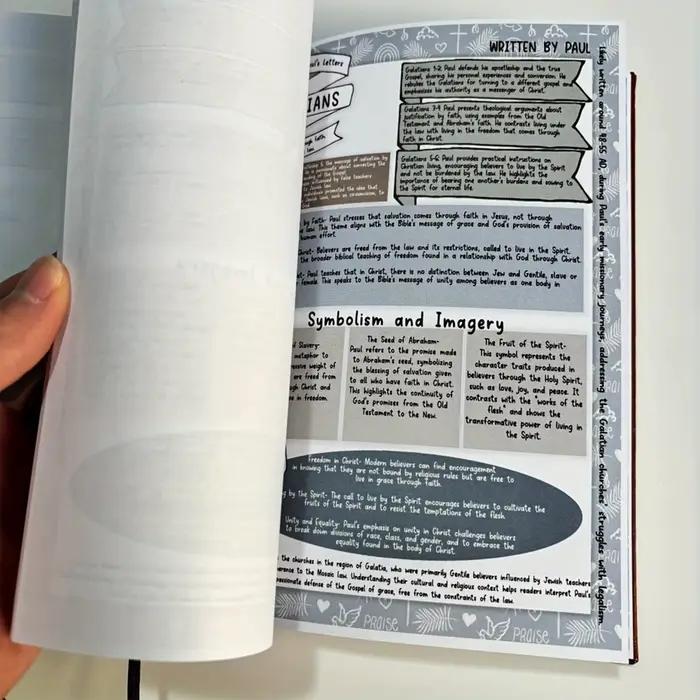 WRITTEN BY PAUL
Paul's Letters
IANS
through faith
law
Galatians 1-2: Paul defends his apostleship and the true
Gospel, sharing his personal experiences and conversion. He
rebukes the Galatians for turning to a different gospel and
emphasizes his authority as a messenger of Christ.
Galatians 3-4 Paul presents theological arguments about
justification by faith, using examples from the Old
Testament and Abraham's faith. He contrasts living under
the law with living in the freedom that comes through
faith in Christ.
Galatians 5-6: Paul provides practical instructions on
Christian living, encouraging believers to live by the Spirit
and not be burdened by the law. He highlights the
importance of bearing one another's burdens and sowing to
the Spirit for eternal life.
the message of salvation by
is passionate about correcting the
of the Gospel
influenced by false teachers
Jewish law
individuals promoted the idea that
Jewish laws, such as circumcision, to
by Faith- Paul stresses that salvation comes through faith in Jesus, not through
law. This theme aligns with the Bible's message of grace and God's provision of salvation
human effort.
Christ- Believers are freed from the law and its restrictions, called to live in the Spirit.
the broader biblical teaching of freedom found in a relationship with God through Christ.
Paul teaches that in Christ, there is no distinction between Jew and Gentile, slave or
female. This speaks to the Bible's message of unity among believers as one body in
Symbolism and Imagery
of Slavery-
metaphor to
weight of
are freed from
through Christ and
in freedom.
The Seed of Abraham-
Paul refers to the promise made
to Abraham's seed, symbolizing
the blessing of salvation given
to all who have faith in Christ.
This highlights the continuity of
God's promises from the Old
Testament to the New.
The Fruit of the Spirit-
This symbol represents the
character traits produced in
believers through the Holy Spirit,
such as love, joy, and peace. It
contrasts with the "works of the
flesh" and shows the
transformative power of living in
the Spirit.
Freedom in Christ- Modern believers can find encouragement
in knowing that they are not bound by religious rules but are free to
live in grace through faith.
by the Spirit- The call to live by the Spirit encourages believers to cultivate the
fruits of the Spirit and to resist the temptations of the flesh.
Unity and Equality- Paul's emphasis on unity in Christ challenges believers
to break down divisions of race, class, and gender, and to embrace the
equality found in the body of Christ.
the churches in the region of Galatia, who were primarily Gentile believers influenced by Jewish teachers
adherence to the Mosaic law. Understanding their cultural and religious context helps readers interpret Paul's
passionate defense of the Gospel of grace, free from the constraints of the law.
likely written around 48-55 AD, during Paul's early missionary journeys, addressing the Galatian churches' struggles with legalism.
PRAISE
PRAISE
PRAISE